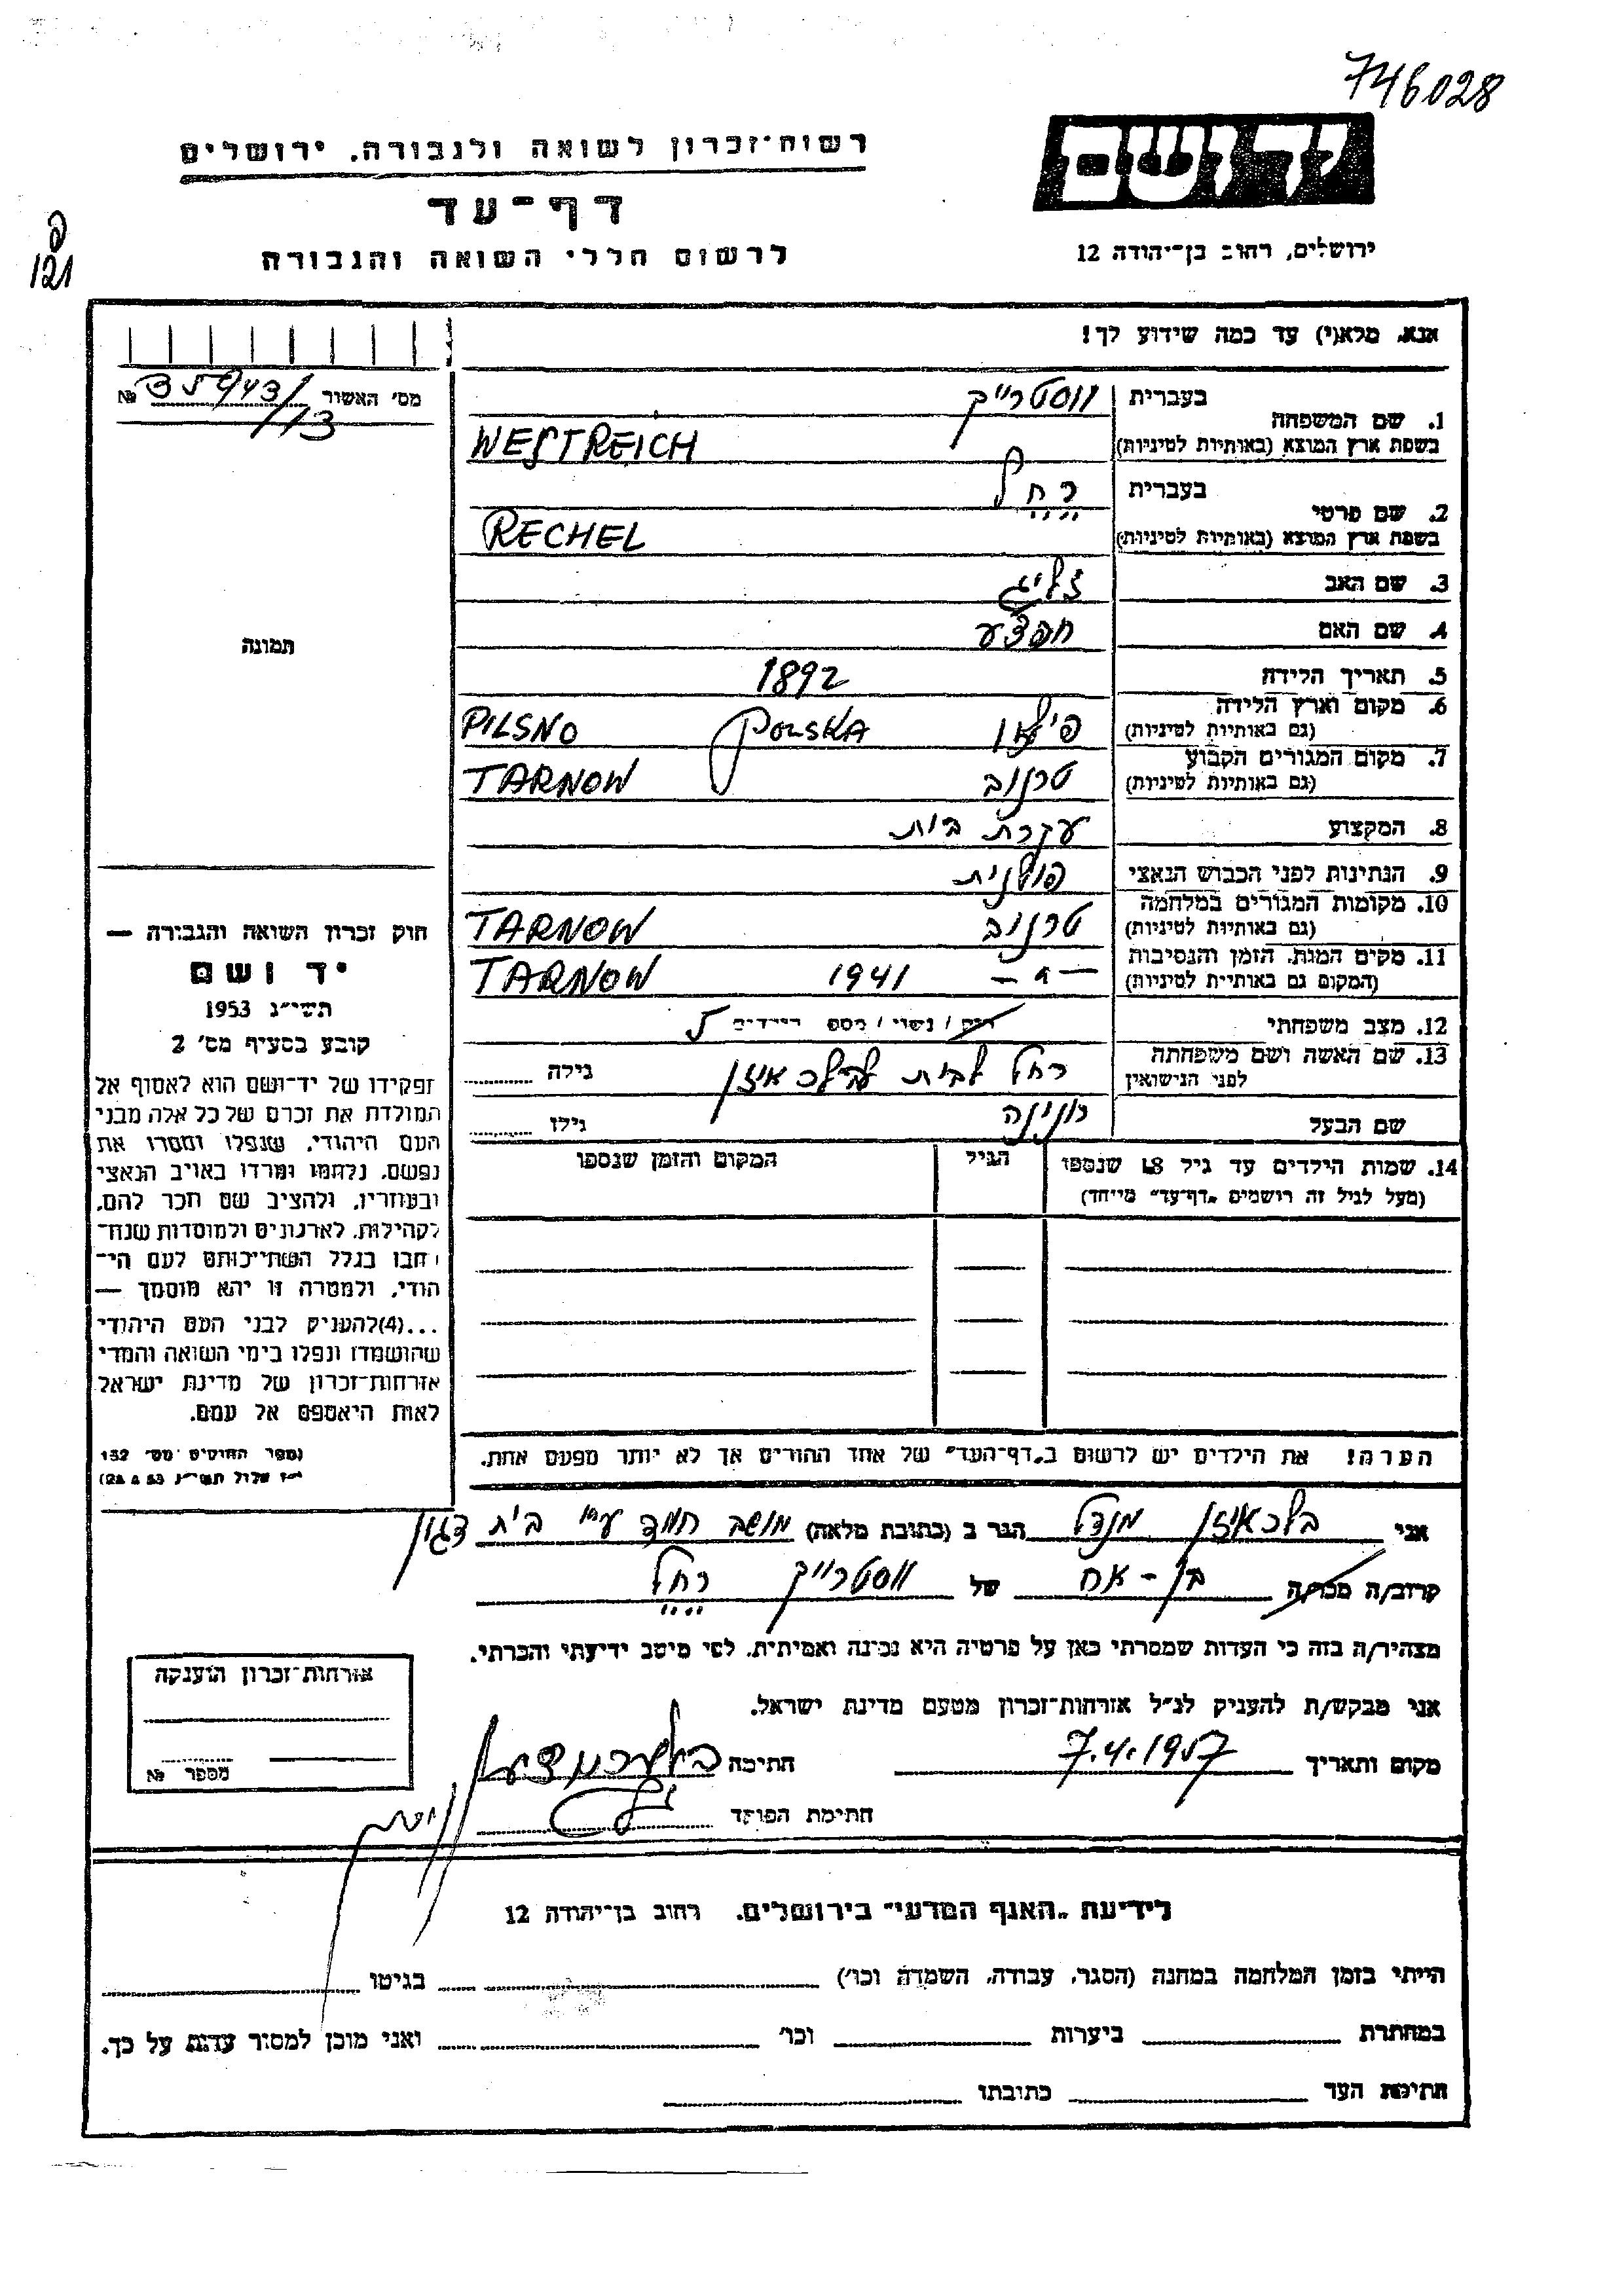 746028
יד ושם
רשות־זכרון לשואה ולגבורה. ירושלים
דף־עד
לרשום חללי השואה והגבורה
ירושלים, רחוב בן־יהודה 12
121
אנא, מלא(י) עד כמה שידוע לך!
מס׳ האשור № 35943/113
1. שם המשפחה בעברית ווסטרייך
בשפת ארץ המוצא (באותיות לטיניות) WESTREICH
2. שם פרטי בעברית רחל
בשפת ארץ המוצא (באותיות לטיניות) RECHEL
3. שם האב זליג
4. שם האם
5. תאריך הלידה 1892
6. מקום וארץ הלידה PILSNO POLSKA
(גם באותיות לטיניות)
7. מקום המגורים הקבוע טרנוב TARNOW
(גם באותיות לטיניות)
8. המקצוע עקרת בית
9. הנתינות לפני הכבוש הנאצי פולנית
10. מקומות המגורים במלחמה טרנוב TARNOW
(גם באותיות לטיניות)
11. מקום המות, הזמן והנסיבות -״- 1941 TARNOW
(המקום גם באותיות לטיניות)
12. מצב משפחתי רווק / נשוי / מספר הילדים 5
13. שם האשה ושם משפחתה רחל לבית גילה
לפני הנישואין
שם הבעל גילו
14. שמות הילדים עד גיל 18 שנספו הגיל המקום והזמן שנספו
(מעל לגיל זה רושמים ״דף־עד״ מייחד)
תמונה
חוק זכרון השואה והגבורה —
יד ושם
תשי״ג 1953
קובע בסעיף מס׳ 2
תפקידו של יד־ושם הוא לאסוף אל
המולדת את זכרם של כל אלה מבני
העם היהודי, שנפלו ומסרו את
נפשם, נלחמו ומרדו באויב הנאצי
ובעוזריו, ולהציב שם וזכר להם,
לקהילות, לארגונים ולמוסדות שנח־
רבו בגלל השתייכותם לעם הי־
הודי, ולמטרה זו יהא מוסמך —
...(4)להעניק לבני העם היהודי
שהושמדו ונפלו בימי השואה והמרי
אזרחות־זכרון של מדינת ישראל
לאות היאספם אל עמם.
(ספר החוקים מס׳ 132
הערה! את הילדים יש לרשום ב״דף־העד״ של אחד ההורים אך לא יותר מפעם אחת.
אני מנדל הגר ב (כתובת מלאה) מושב חמד ע״י בית דגון
קרוב/ה מכר/ה בן-אח של ווסטרייך רחל
מצהיר/ה בזה כי העדות שמסרתי כאן על פרטיה היא נכונה ואמיתית, לפי מיטב ידיעתי והכרתי.
אני מבקש/ת להעניק לנ״ל אזרחות־זכרון מטעם מדינת ישראל.
מקום ותאריך 7.4.1957 חתימה
חתימת הפוקד
אזרחות־זכרון הוענקה
מספר №
לידיעת ״האגף המדעי״ בירושלים. רחוב בן־יהודה 12
הייתי בזמן המלחמה במחנה (הסגר, עבודה, השמדה וכו׳) בגיטו
במחתרת ביערות וכו׳ ואני מוכן למסור עדות על כך.
חתימת העד כתובתו